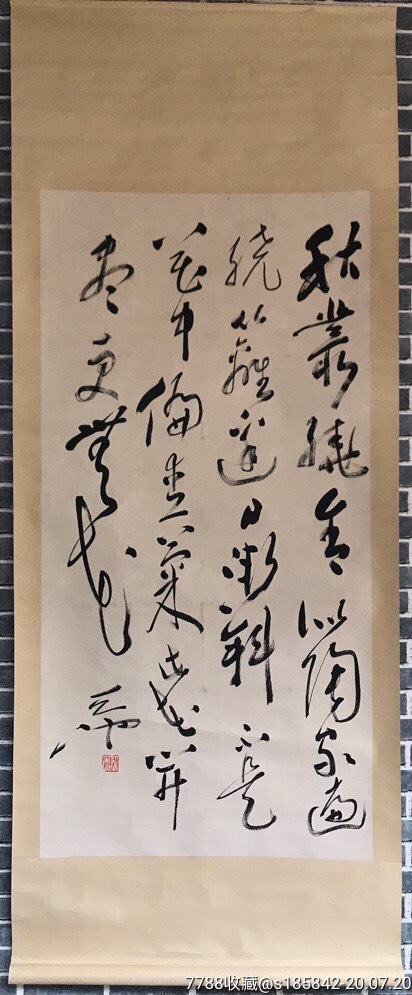 秋叢繞舍似陶家遍
繞籬邊日漸斜不是
花中偏愛菊此花開
盡更無花
7788收藏@s185842 20.07.20